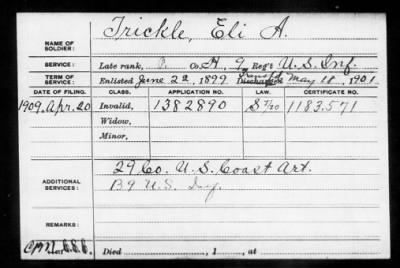 Trickle, Eli A.
NAME OF SOLDIER:
SERVICE: Late rank, P. Co. H, 9 Reg't U.S. Inf.
TERM OF SERVICE: Enlisted June 22, 1899 Transf'd Discharged May 18, 1901
DATE OF FILING. CLASS. APPLICATION NO. LAW. CERTIFICATE NO.
1909. Apr. 20 Invalid, 1382890 S 7/20 1183.571
Widow,
Minor,
ADDITIONAL SERVICES: 29 Co. U.S. Coast Art.
B 9 U.S. Inf.
REMARKS:
Died , 1 , at